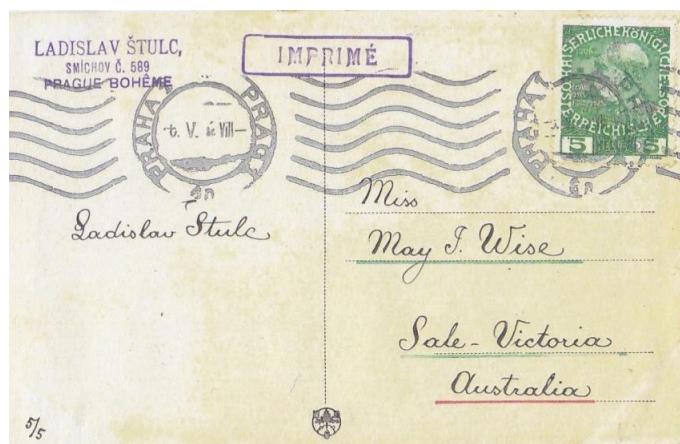 LADISLAV ŠTULC,
SMÍCHOV Č. 589
PRAGUE BOHÊME
IMPRIMÉ
PRAHA PRAG
6. V. VIII–
6a
PRAHA
6a
KAISERLICHE KÖNIGLICHE ÖSTERREICHISCHE
5 HELLER 5
Ladislav Štulc
Miss
May J. Wise
Sale - Victoria
Australia
5/5